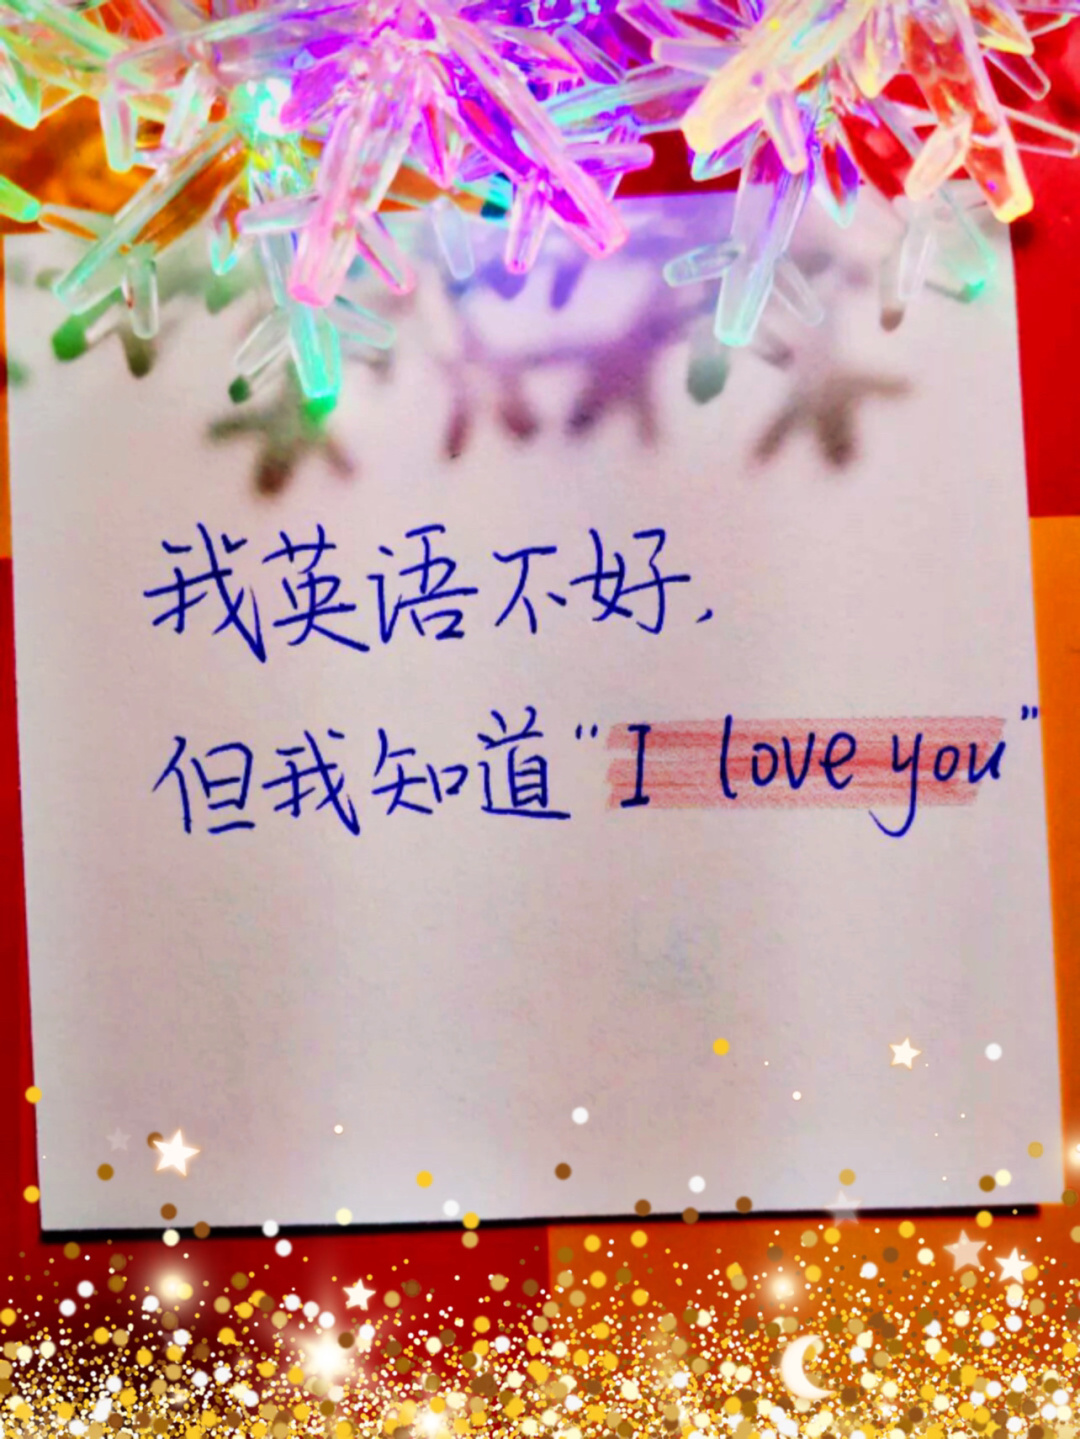 我英语不好,
但我知道“I love you”